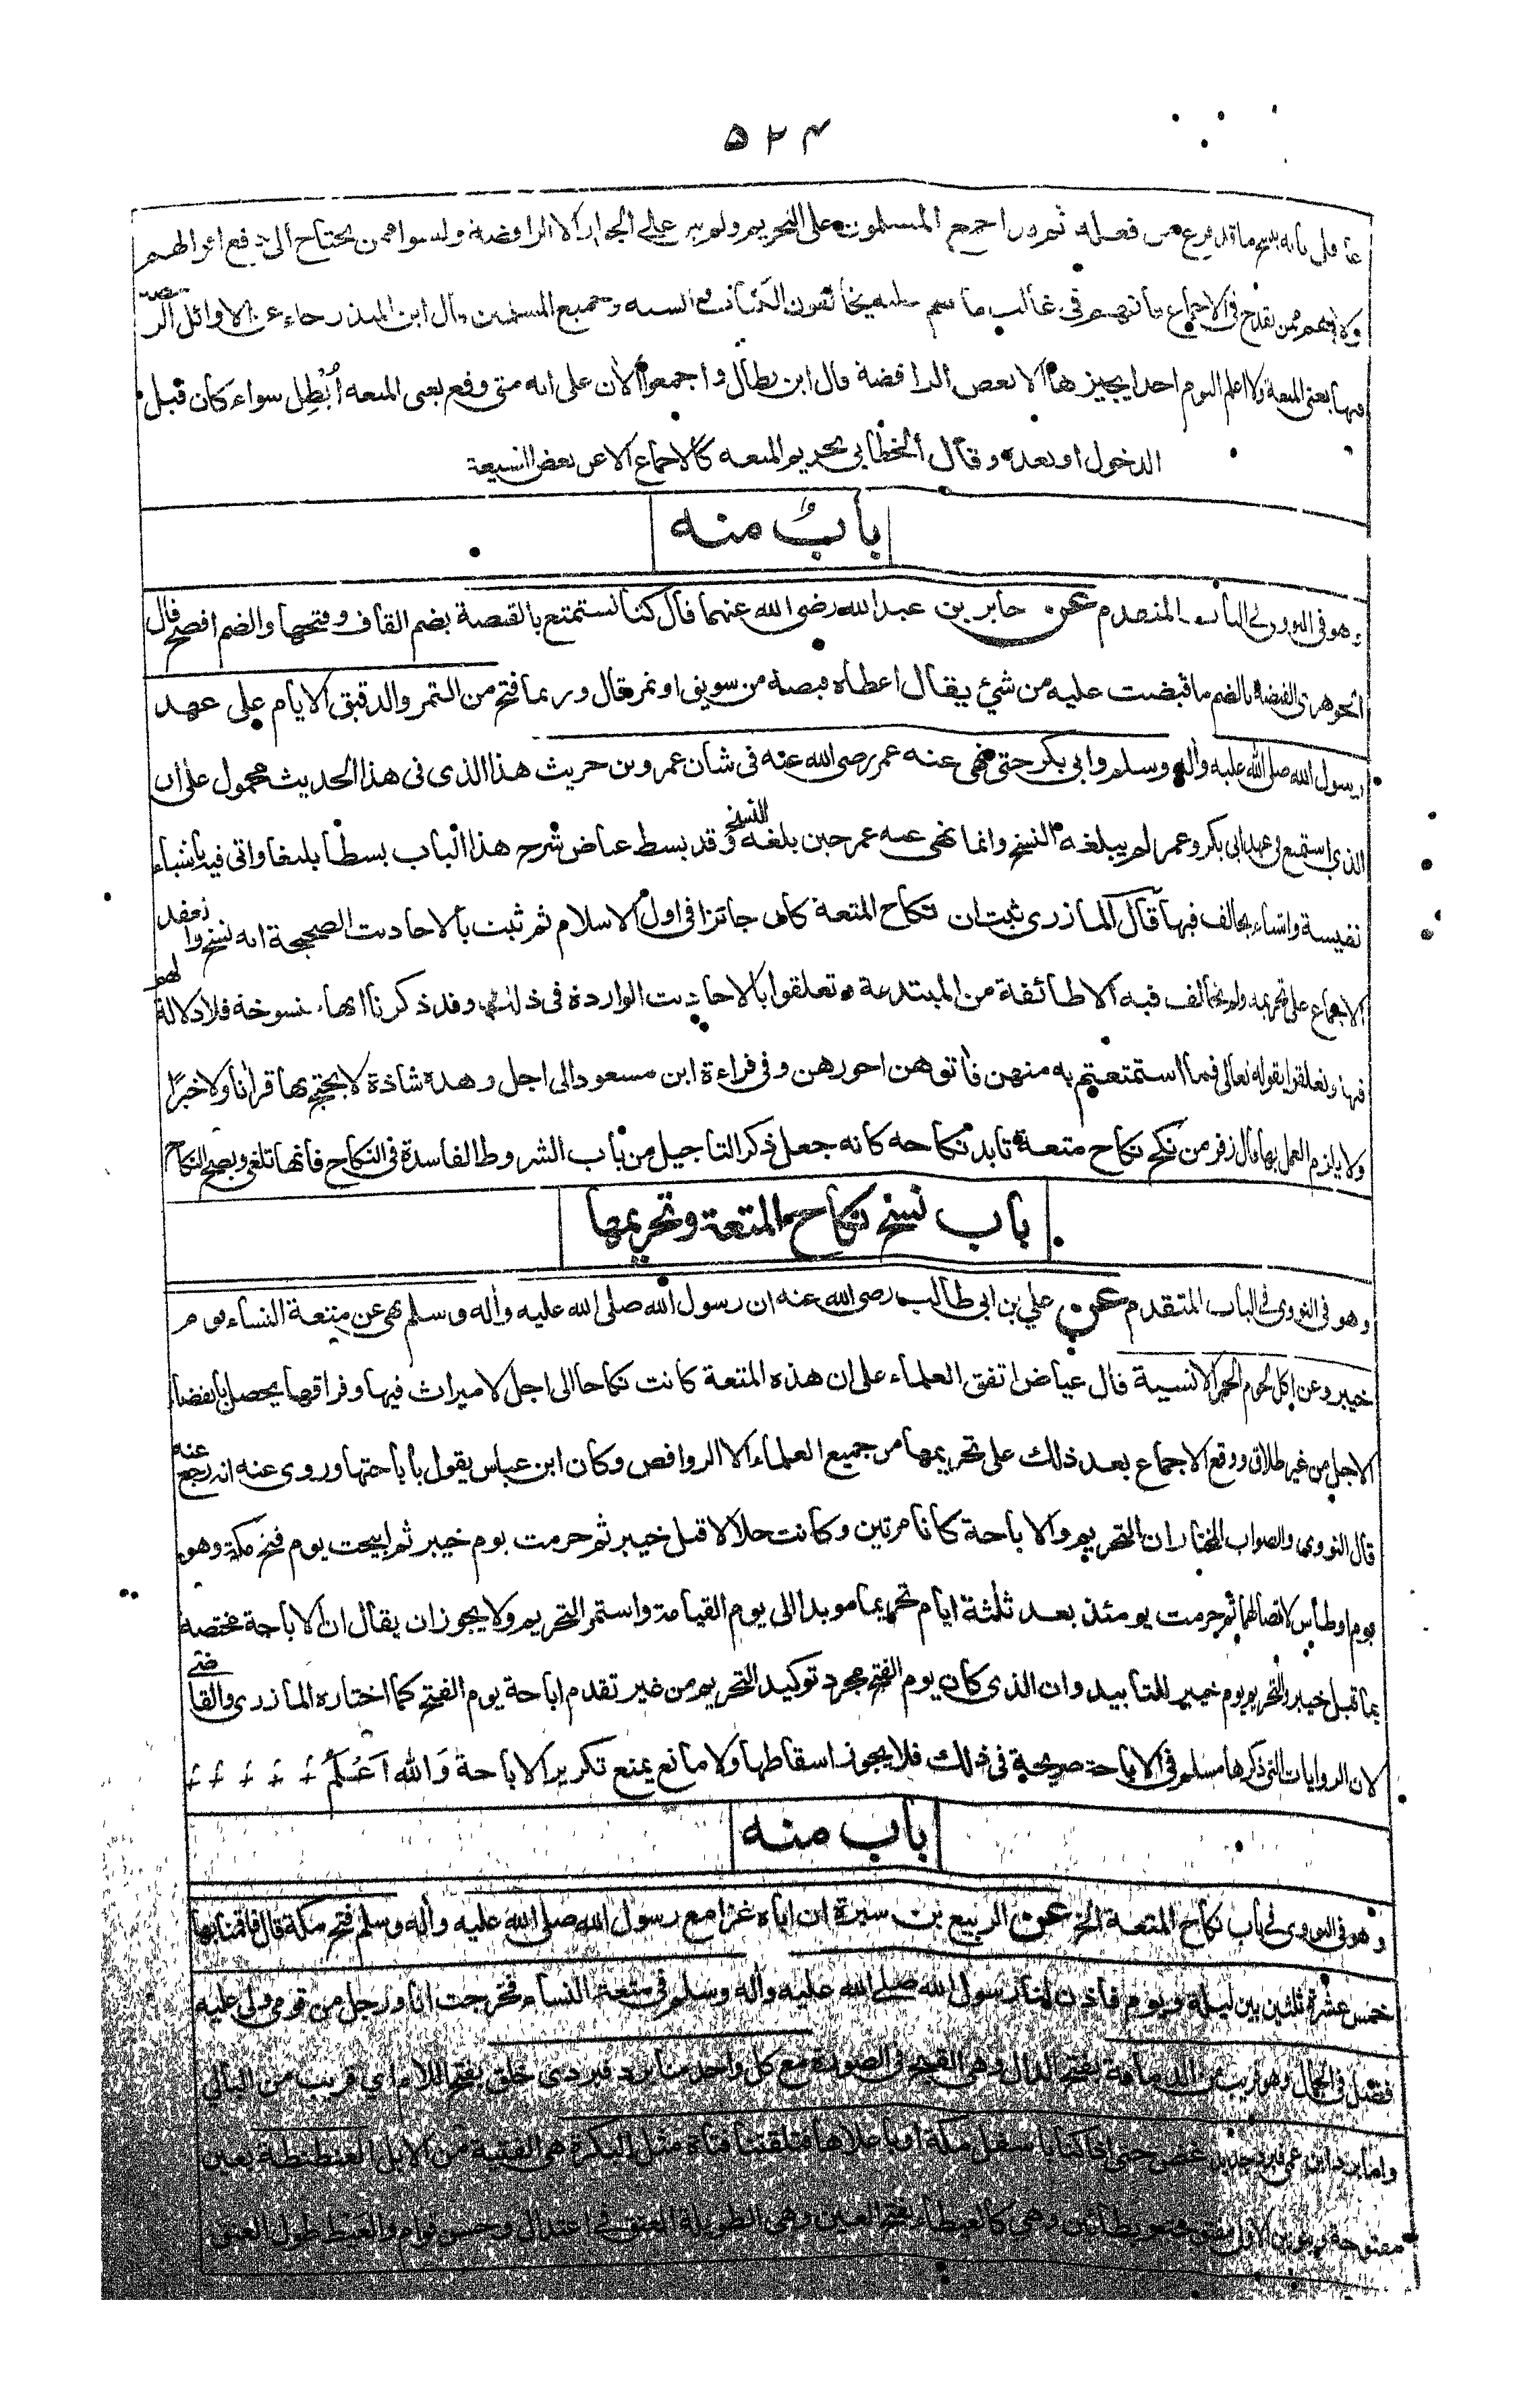 ٥٢٤
على التحريم ولم يبق على الجواز الا الرافضة وليسوا ممن يحتاج الى دفع اقوالهم
ولا هم ممن يقدح فى الاجماع فانهم فى غالب ما هم عليه يخالفون الكتاب والسنه وجميع المسلمين قال ابن المنذر جاء عن الاوائل الرخصه
فيها يعنى المتعة ولا اعلم اليوم احدا يجيزها الا بعض الرافضة قال ابن بطال واجمعوا الآن على انه متى وقع يعنى المتعه اُبْطِل سواء كان قبل
الدخول او بعده وقال الخطابى تحريم المتعه كالاجماع الا عن بعض الشيعة
بابٌ منه
وهو فى النووى فى الباب المتقدم عن جابر بن عبد الله رضى الله عنهما قال كنا نستمتع بالقبضة بضم القاف وفتحها والضم افصح قال
الجوهرى القبضة بالضم ما قبضت عليه من شئ يقال اعطاه قبضة من سويق او تمر قال وربما فتح من التمر والدقيق الايام على عهد
رسول الله صلى الله عليه وأله وسلم وابى بكر حتى نهى عنه عمر رضى الله عنه فى شان عمرو بن حريث هذا الذى فى هذا الحديث محمول على ان
الذى استمتع فى عهد ابى بكر وعمر لم يبلغه النسخ وانما نهى عنه عمر حين بلغه النسخ وقد بسط عياض شرح هذا الباب بسطا بليغا واتى فيه باشياء
نفيسة واشياء يخالف فيها قال المازرى ثبت ان نكاح المتعة كان جائزا فى اول الاسلام ثم ثبت بالاحاديث الصحيحة انه نسخ وانعقد
الاجماع على تحريمه ولم يخالف فيه الا طائفة من المبتدعة وتعلقوا بالاحاديث الواردة فى ذلك وقد ذكرنا انها منسوخة فلا دلالة لهم
فيها وتعلقوا بقوله تعالى فما استمتعتم به منهن فأتوهن اجورهن وفى قراءة ابن مسعود الى اجل وهذه شاذة لا يحتج بها قرأنا ولا خبرًا
ولا يلزم العمل بها وقال زفر من نكح نكاح متعة تابد نكاحه كانه جعل ذكر التاجيل من باب الشروط الفاسدة فى النكاح فانها تلغى ويصح النكاح
باب نسخ نكاح المتعة وتحريمها
وهو فى النووى فى الباب المتقدم عن علي بن ابى طالب رضى الله عنه ان رسول الله صلى الله عليه وأله وسلم نهى عن متعة النساء يوم
خيبر وعن اكل لحوم الحمر الانسية قال عياض اتفق العلماء على ان هذه المتعة كانت نكاحا الى اجل لا ميراث فيها وفراقها يحصل بانقضاء
الاجل من غير طلاق ووقع الاجماع بعد ذلك على تحريمها من جميع العلماء الا الروافض وكان ابن عباس يقول باباحتها وروى عنه انه رجع عنه
قال النووى والصواب المختار ان التحريم والاباحة كانا مرتين وكانت حلالا قبل خيبر ثم حرمت يوم خيبر ثم ابيحت يوم فتح مكة وهو
يوم اوطاس لاتصالهما ثم حرمت يومئذ بعد ثلثة ايام تحريما موبدا الى يوم القيامة واستمر التحريم ولا يجوز ان يقال ان الاباحة مختصة
بما قبل خيبر والتحريم يوم خيبر للتابيد وان الذى كان يوم الفتح مجرد توكيد التحريم من غير تقدم اباحة يوم الفتح كما اختاره المازرى والقاضى
لان الروايات التى ذكرها مسلم فى الاباحة صريحة فى ذلك فلا يجوز اسقاطها ولا مانع يمنع تكرير الاباحة وَالله اَعْلَمُ
باب منه
وهو فى النووى فى باب نكاح المتعة الخ عن الربيع بن سبرة ان اباه غزا مع رسول الله صلى الله عليه وأله وسلم فتح مكة قال فاقمنا بها
خمس عشرة ثلثين بين ليلة ويوم فاذن لنا رسول الله صلى الله عليه وأله وسلم فى متعة النساء فخرجت انا ورجل من قومى ولى عليه
فضل فى الجمال وهو قريب من الدمامة بفتح الدال وهى القبح فى الصورة مع كل واحد منا برد فبردى خلق بفتح اللام اي قريب من البالى
واما برد ابن عمى فبرد جديد غض حتى اذا كنا باسفل مكة او باعلاها فتلقتنا فتاة مثل البكرة هى الفتية من الابل العنطنطة بعين
مفتوحة وبنونين الاولى مفتوحة وبطائين وهى كالعيطاء بفتح العين وهى الطويلة العنق فى اعتدال وحسن قوام والعيط طول العنق